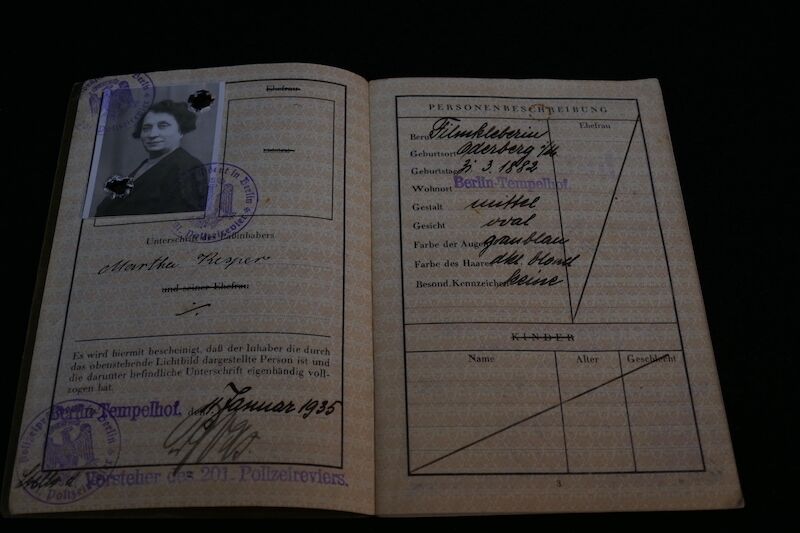 Ehefrau
Unterschrift des Paßinhabers
Martha Kesper
und seiner Ehefrau
Es wird hiermit bescheinigt, daß der Inhaber die durch
das obenstehende Lichtbild dargestellte Person ist und
die darunter befindliche Unterschrift eigenhändig voll-
zogen hat.
Berlin-Tempelhof. den 11. Januar 1935
Vorsteher des 201. Polizeireviers.
PERSONENBESCHREIBUNG
Ehefrau
Beruf Filmkleberin
Geburtsort Oderberg
Geburtstag 3. 1882
Wohnort Berlin-Tempelhof.
Gestalt mittel
Gesicht oval
Farbe der Augen graublau
Farbe des Haares dkl. blond
Besond. Kennzeichen keine
KINDER
Name Alter Geschlecht
3